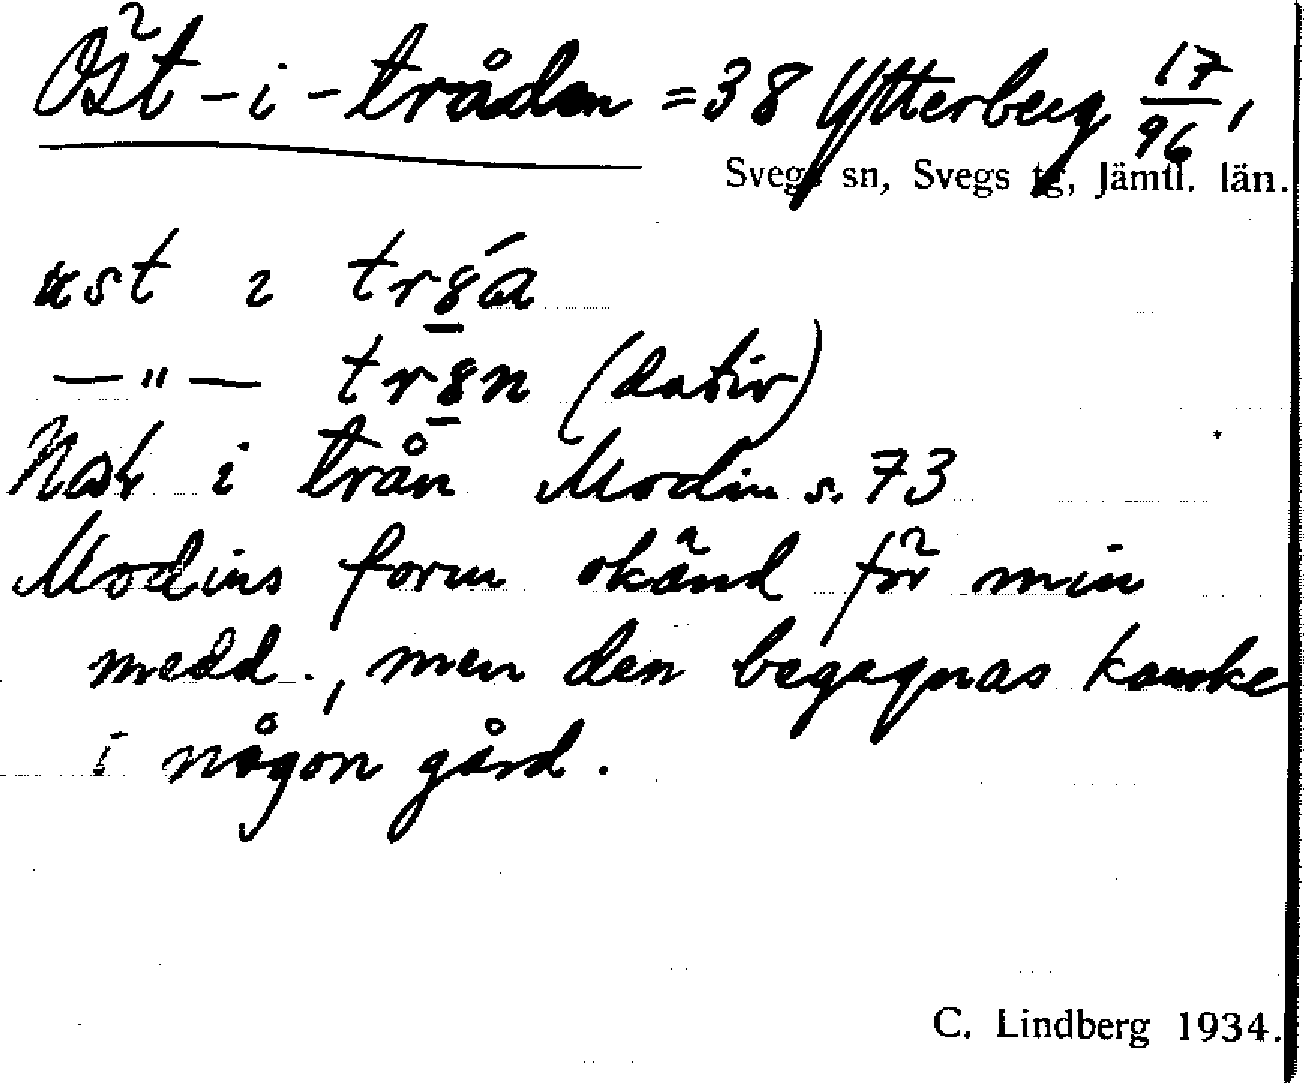 Öst-i-tråden = 38 Ytterberg 17/96,
Svegs sn, Svegs tg, Jämtl. län.
ust ı tr8́a
—"— tr8n (dativ)
i trån Modin s. 73
Modins form okänd för min
medd., men den begagnas kanske
i någon gård.
C. Lindberg 1934.